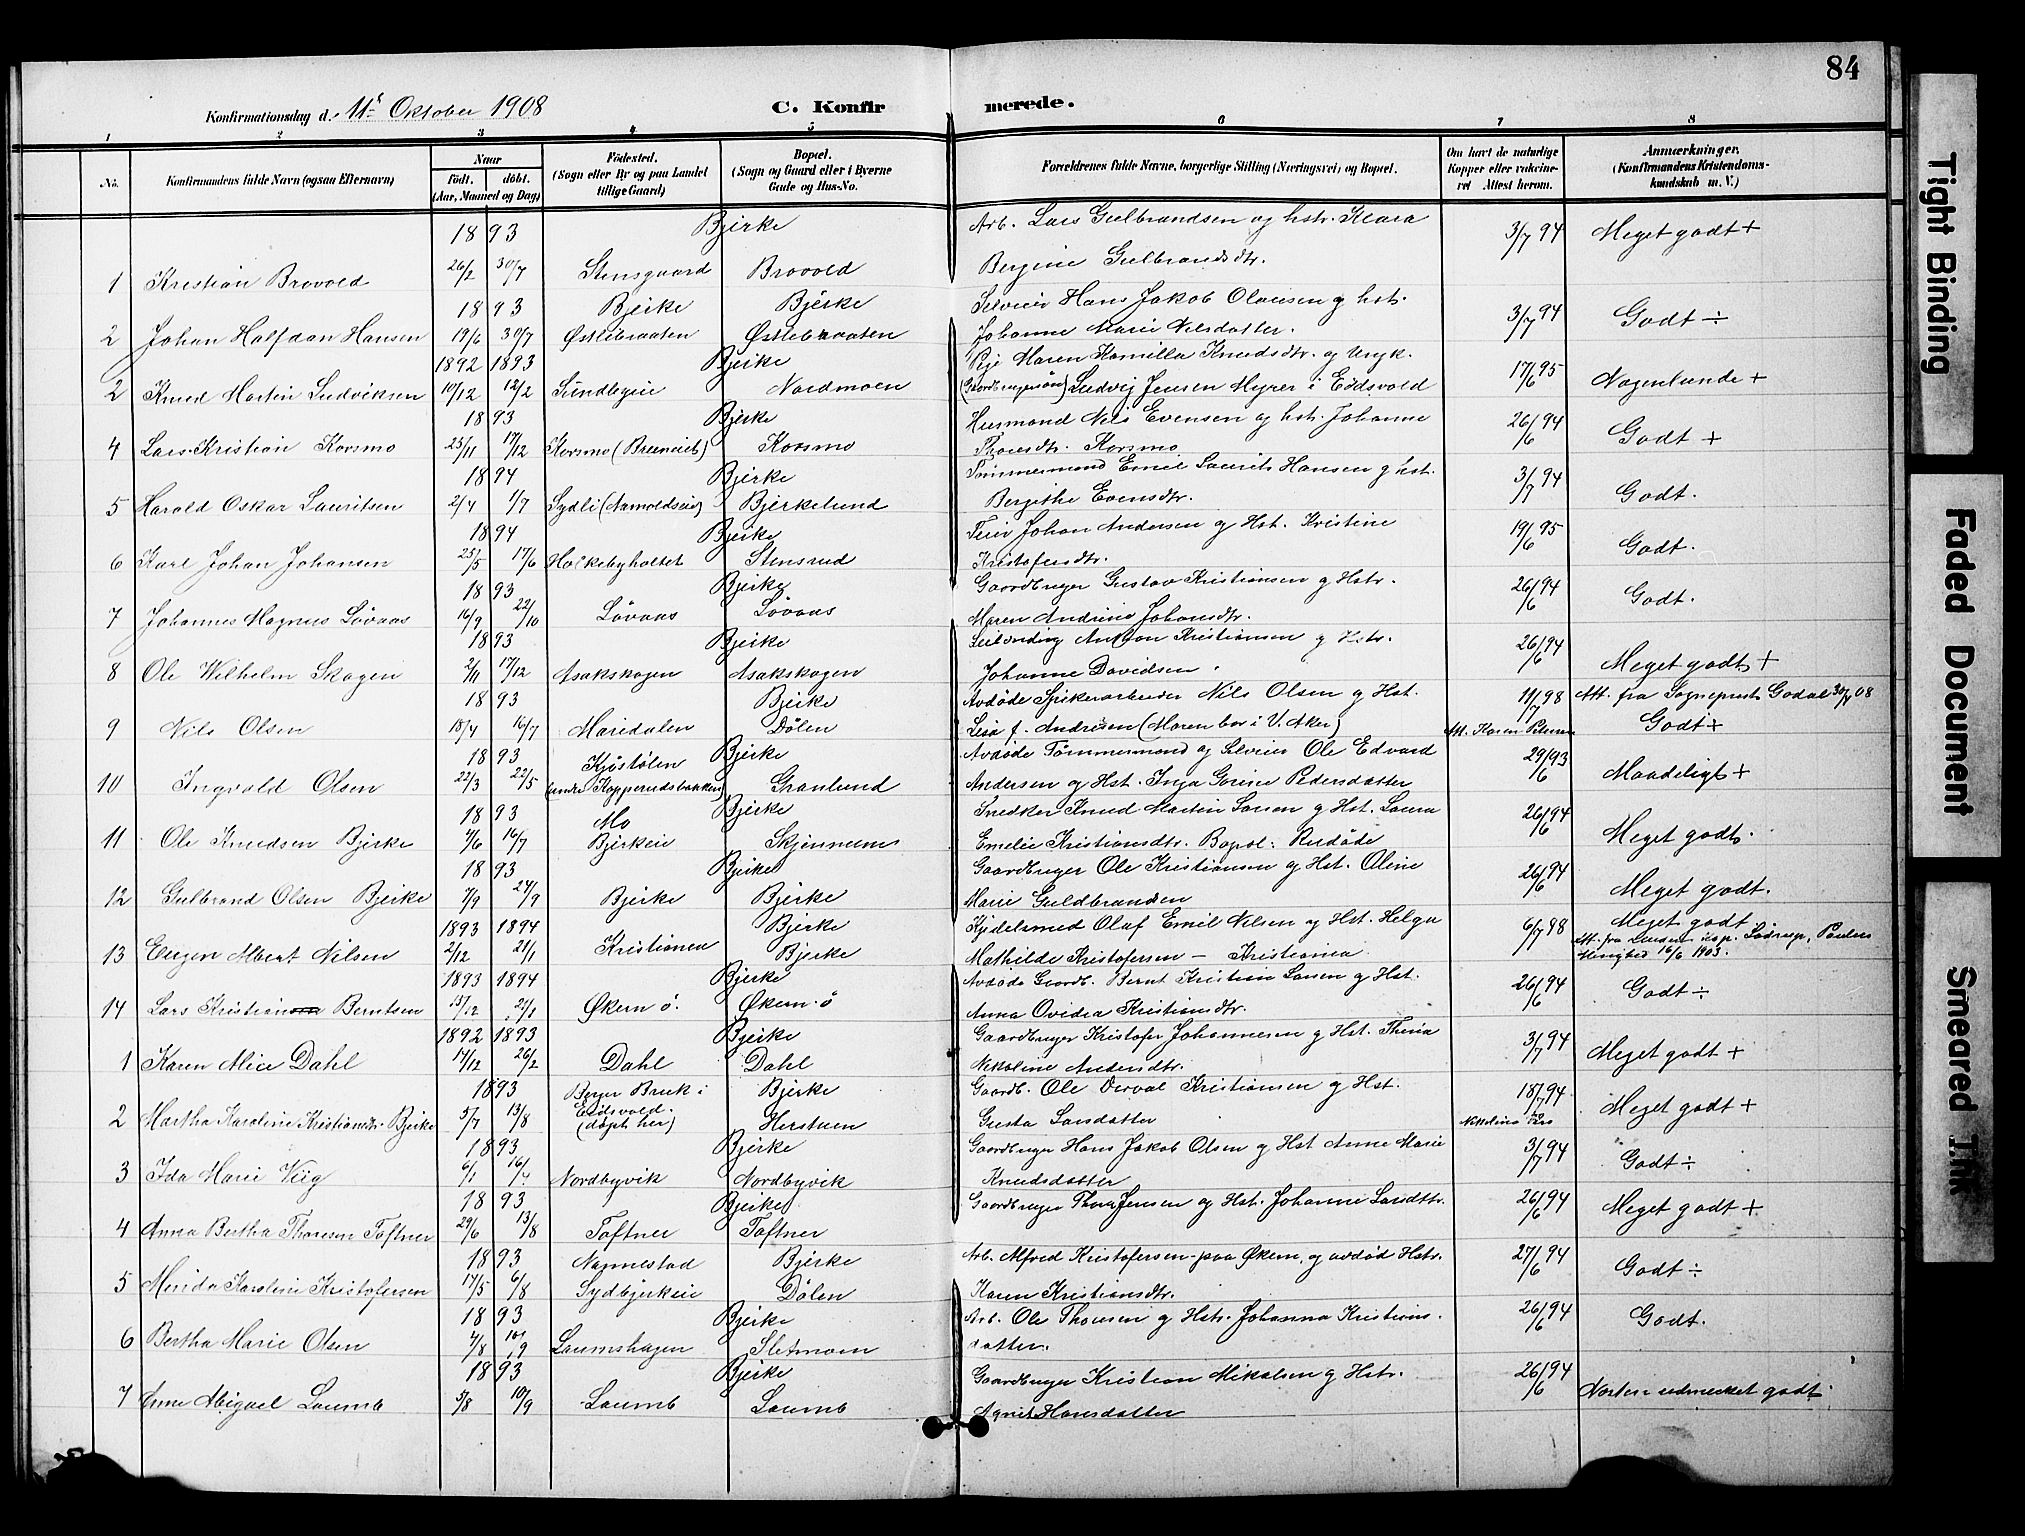 84
Konfirmationsdag d. 11te Oktober 1908
C. Konfirmerede.
1 2 3 4 5 6 7 8
No.
Konfirmandens fulde Navn (ogsaa Efternavn)
Naar
Født. døbt.
(Aar, Maaned og Dag)
Fødested.
(Sogn eller By og paa Landet
tillige Gaard)
Bopæl.
(Sogn og Gaard eller i Byerne
Gade og Hus-No.
Forældrenes fulde Navne, borgerlige Stilling (Næringsvei) og Bopæl.
Om havt de naturlige
Kopper eller vakcine-
ret Attest herom.
Anmærkninger.
(Konfirmandens Kristendoms-
kundskab m. V.)
1893 Bjerke Arb. Lars Gulbrandsen og hstr. Klara 3/7 94 Meget godt +
1 Kristian Brovold 26/2 30/7 Stensgaard Brovold Bergine Gulbrandsdtr.
1893 Bjerke Bjerke Selveier Hans Jakob Olausen og hst. 3/7 94 Godt ÷
2 Johan Halfdan Hansen 19/6 30/7 Østlibraaten Østlibraaten Johanne Marie Nilsdatter.
1892 1893 Bjerke Pige Maren Kamilla Knudsdtr. og Ungk. 17/6 95 Nogenlunde +
2 Knud Martin Ludviksen 10/12 12/2 Sundbyeie Nordmoen (Gaardbrugersøn) Ludvig Jensen Myrer i Eidsvold
1893 Bjerke Husmand Nils Evensen og hst. Johanne 26/6 94 Godt +
4 Lars Kristian Korsmo 25/11 17/12 Korsmo Korsmo Thoresdtr. Korsmo
1894 Bjerke Tømmermand Emil Laurits Hansen og hst. 3/7 94 Godt.
5 Harald Oskar Lauritsen 2/4 1/7 Sydli Bjerkelund Bergithe Evensdtr.
1894 Bjerke Feier Johan Andersen og Hst. Kristine 19/6 95 Godt.
6 Karl Johan Johansen 25/5 17/6 Holkebyholtet Stensrud Kristofersdtr.
1893 Bjerke Gaardbruger Gustav Kristiansen og Hstr. 26/6 94 Godt.
7 Johannes Magnus Løvaas 16/9 22/10 Løvaas Løvaas Maren Andrine Johansdtr.
1893 Bjerke Anton Kristiansen og Hstr. 26/6 94 Meget godt +
8 Ole Wilhelm Skogen 2/11 17/12 Asakskogen Asakskogen Johanne Davidsen.
1893 Bjerke Avdøde Spikerarbeider Nils Olsen og Hst. 11/7 98 Att. fra Sogneprest Godal 08
9 Nils Olsen 18/4 16/7 Maridalen Dølen Lisa f. Andresen (Moren bor i V. Aker) Att. Karen Petersen Godt ÷
1893 Kjøstølen Bjerke Avdøde Tømmermand og Selveier Ole Edvard 29/6 93 Maadeligt +
10 Ingvald Olsen 22/3 22/5 (under Kopperudsbakken) Granlund Andersen og Hst. Inga Gorine Pedersdatter
1893 Mo Bjerke Snedker Knud Martin Larsen og Hst. Laura 26/6 94 Meget godt.
11 Ole Knudsen Bjerke 7/6 16/7 Bjerkeie Skjønnum Emelie Kristiansdtr. Bopæl: Rudøde
1893 Bjerke Gaardbruger Ole Kristiansen og Hst. Oline 26/6 94 Meget godt.
12 Gulbrand Olsen Bjerke 7/9 24/9 Bjerke Bjerke Marie Guldbrandsen
1893 1894 Bjerke Kjedelsmed Olaf Emil Nilsen og Hst. Helga 6/7 98 Meget godt
13 Eugen Albert Nilsen 2/12 21/1 Kristiania Bjerke Mathilde Kristofersen — Kristiania Att. fra Paulus Menighed 16/6 1903.
1893 1894 Bjerke Avdøde Gaardb. Bernt Kristian Larsen og Hst. 26/6 94 Godt ÷
14 Lars Kristian Berntsen 15/12 21/1 Økern ø. Økern ø Anna Ovidia Kristiansdtr.
1892 1893 Bjerke Gaardbruger Kristofer Johannesen og Hst. Thea 3/7 94 Meget godt +
1 Karen Alice Dahl 17/12 26/2 Dahl Dahl Nikoline Andersdtr.
1893 Berger Bruk i Bjerke Gaardb. Ole Kristiansen og Hst. 18/7 94 Meget godt +
2 Martha Karoline Kristiansdtr. Bjerke 5/7 13/8 Eidsvold. (døpt her) Herstuen Gusta Larsdatter Nikoline
1893 Bjerke Gaardbruger Hans Jakob Olsen og Hst Anne Marie 3/7 94 Godt ÷
3 Ida Marie Viig 6/1 16/4 Nordbyvik Nordbyvik Knudsdatter
1893 Bjerke Gaardbruger Thore Jensen og Hst. Johanne Larsdttr. 26/6 94 Meget godt +
4 Anna Bertha Thoresen Toftner 29/6 13/8 Toftner Toftner
1893 Nannestad Bjerke Arb. Alfred Kristofersen paa Økern, og avdød Hstr. 27/6 94 Godt ÷
5 Minda Karoline Kristofersen 17/5 6/8 Sydbjerkeie Dølen Karen Kristiansdtr.
1893 Bjerke Arb. Ole Thoresen og Hstr. Johanna Kristians- 26/6 94 Godt.
6 Bertha Marie Olsen 4/8 10/9 Laumshagen Sletmoen datter.
1893 Bjerke Gaardbruger Kristian Mikalsen og Hstr. 26/6 94 Næsten udmerket godt.
7 Anne Abigael Laumb 5/8 10/9 Laumb Laumb Agnes Hansdatter
Tight Binding
Faded Document
Smeared Ink